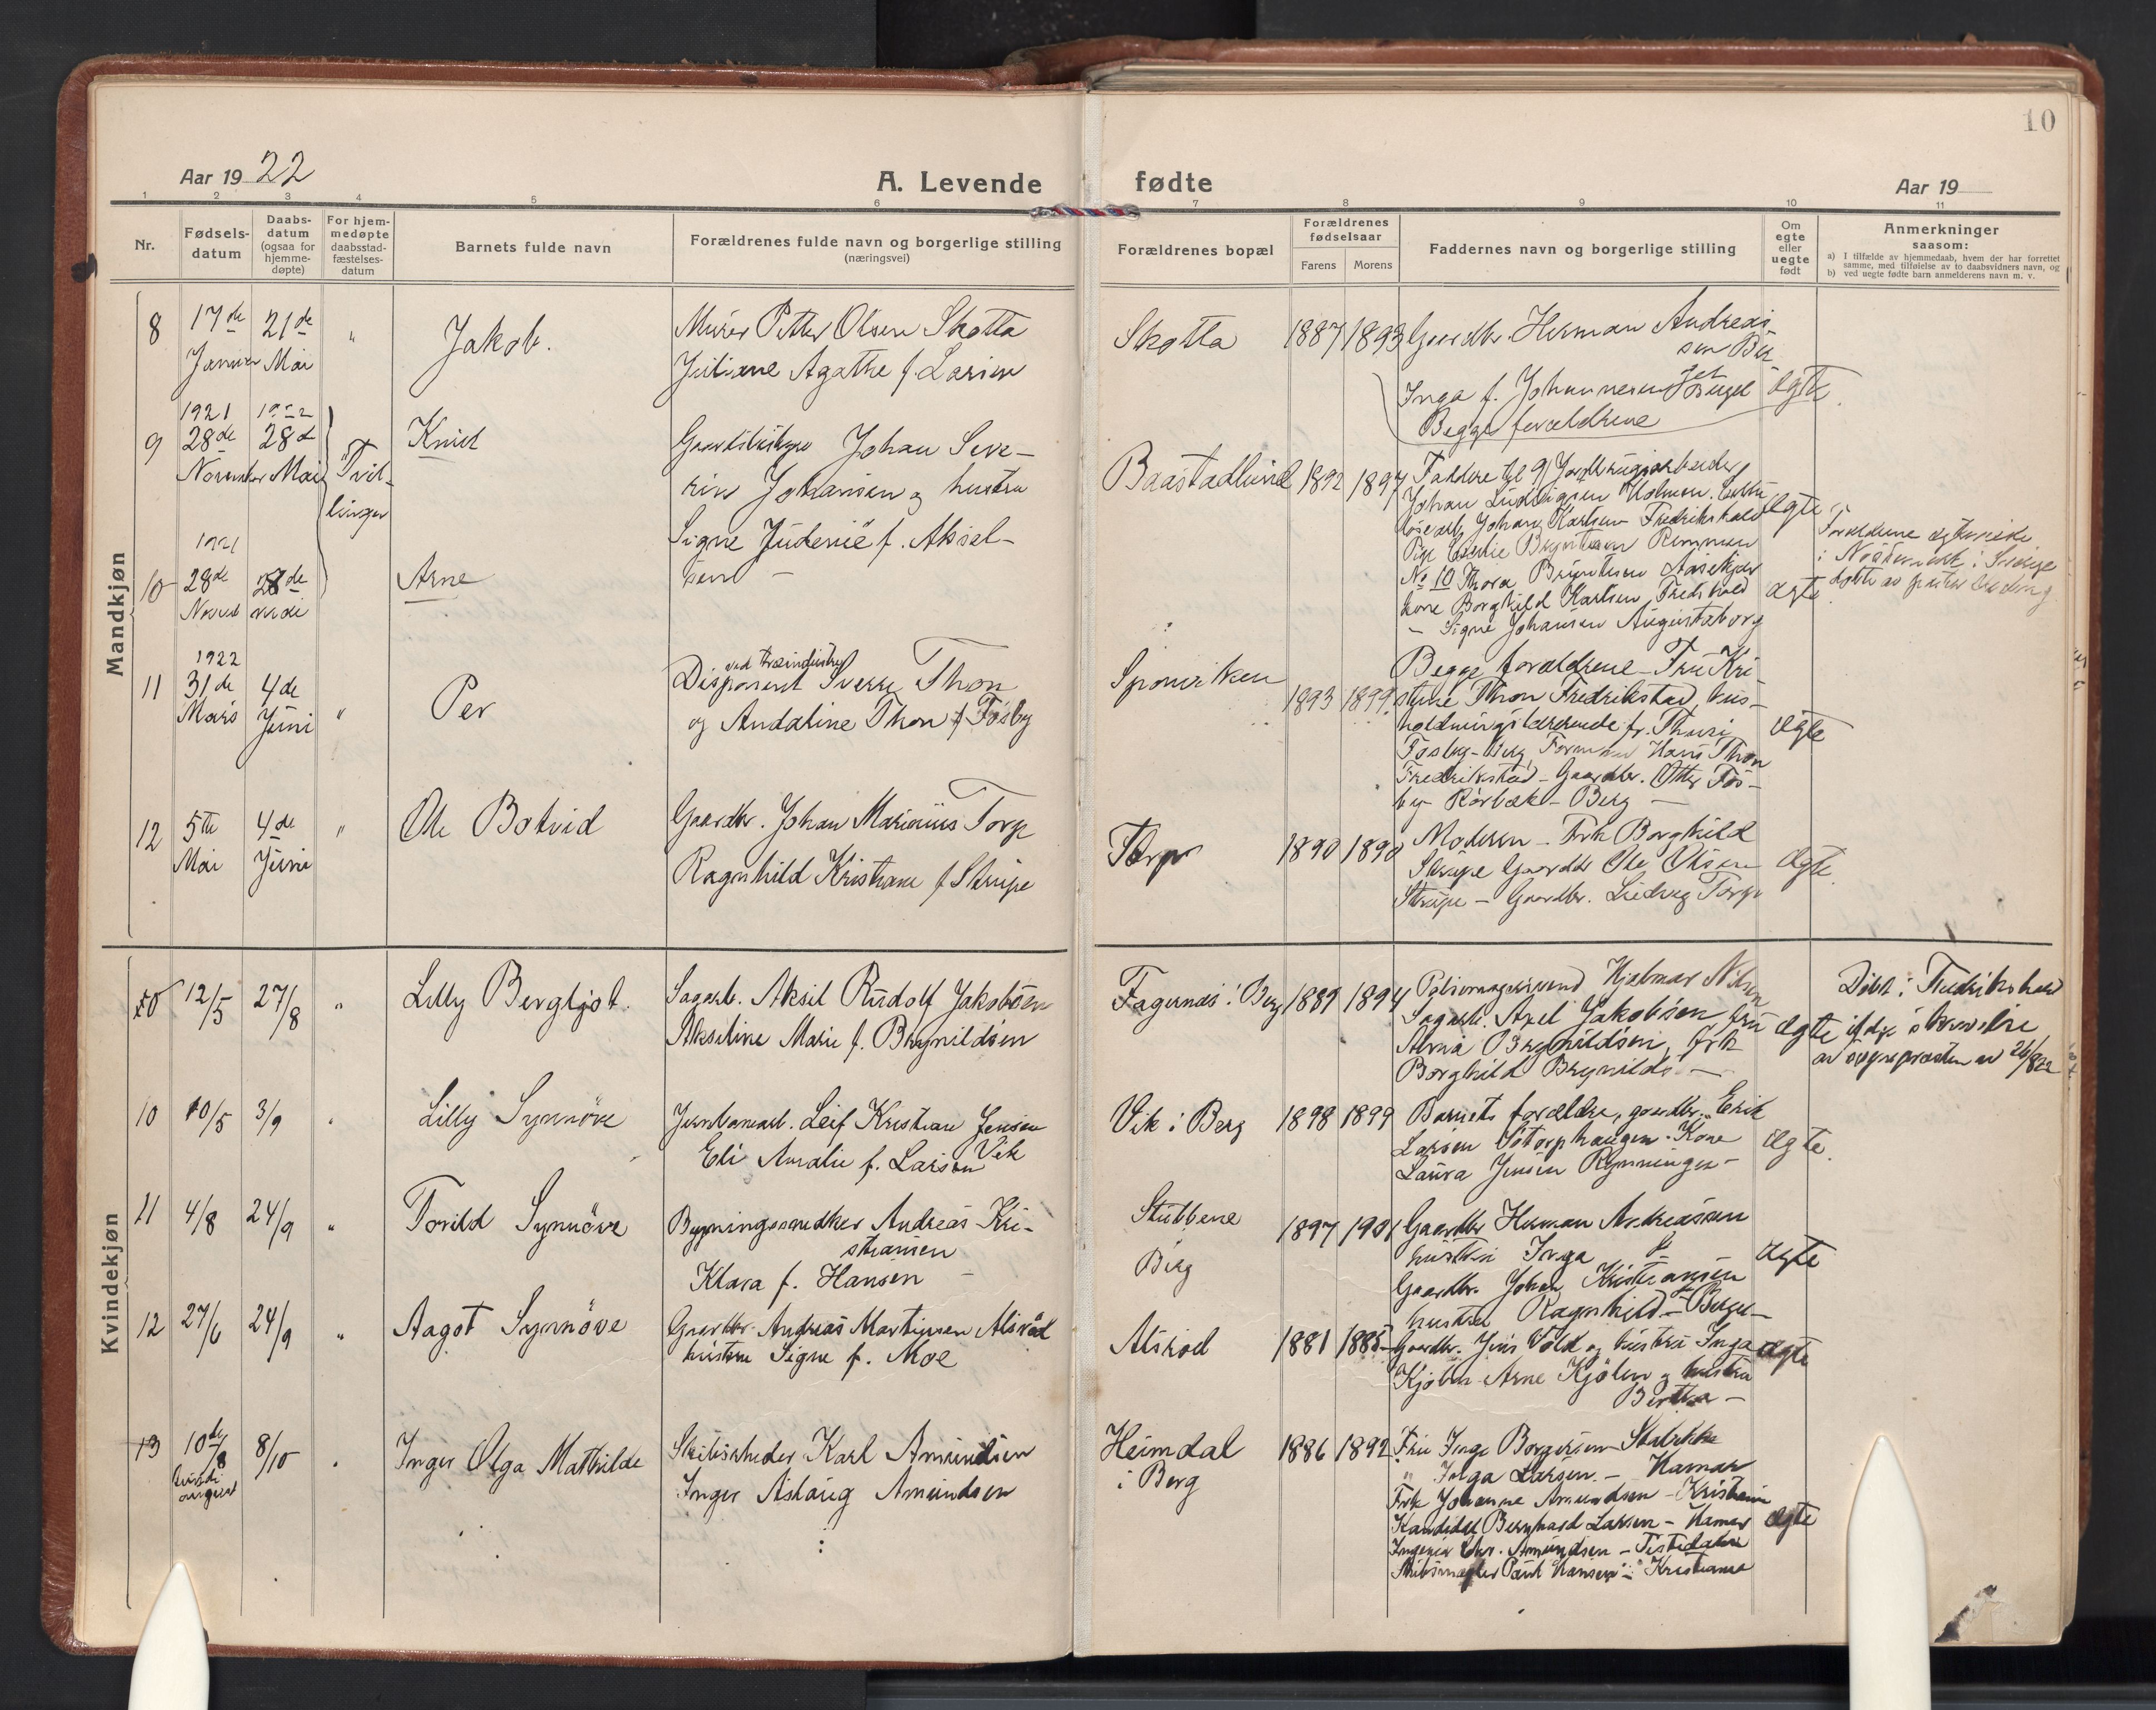 10
Aar 1922
A. Levende
fødte
Aar 19
1 2 3 4 5 6 7 8 9 10 11
Nr.
Fødsels-
datum
Daabs-
datum
(ogsaa for
hjemme-
døpte)
For hjem-
medøpte
daabsstad-
fæstelses-
datum
Barnets fulde navn
Forældrenes fulde navn og borgerlige stilling
(næringsvei)
Forældrenes bopæl
Forældrenes
fødselsaar
Farens Morens
Faddernes navn og borgerlige stilling
Om
egte
eller
uegte
født
Anmerkninger
saasom:
a) I tilfælde av hjemmedaab, hvem der har forrettet
samme, med tilføielse av to daabsvidners navn, og
b) ved uegte fødte barn anmelderens navn m. v.
Mandkjøn
8
17de
Januar
21de
Mai
"
Jakob.
Murer Petter Olsen Skotta
Juliane Agathe f. Larsen
Skotta
1887 1893
Gaardbr. Herman Andreas-
sen Berg
Inga f. Johannesen
Begge forældrene
Ægte
9
1921
28de
November
1922
28de
Mai
Tvil-
linger
Knut
Johan Seve-
rin Johansen og hustru
Signe f. Aksel-
sen
Baastadlund
1892 1897
Faddere til 9)
Johan Ludvigsen Holmen.
Johan Karlsen Fredrikshald
Remmen
Ægte
10
1921
28de
28de
Arne
No 10 Thora
kone Borghild Karlsen, Fredshald
- Signe Johansen Augustaborg
Ægte
Forældrene
i Sverige
døbte av
11
1922
31de
Mars
4de
Juni
"
Per
ved træindustri
Disponent Sverre Thon
og Andaline Thon f. Fosby
Sponviken
1893 1899
Begge forældrene - Fru Kri-
stine Thon Fredrikstad, hus-
holdningslærerinde fr. Thori
Fosby - Berg, Hans Thon
Fredrikstad - Gaardbr. Otto Fos-
by Rørbæk - Berg
Ægte
12
5te
Mai
4de
Juni
"
Ole Botvid
Gaardbr. Johan Marinius Torp
Ragnhild Kristiane f. Strupe
Torp
1890 1890
Moderen - Frk Borghild
Strupe Gaardbr Ole Olsen
Strupe - Gaardbr. Ludvig Torp
Ægte
Kvindekjøn
12/5
27/8
"
Lilly Bergljot.
Sagarb. Aksel Rudolf Jakobsen
Akseline Marie f. Brynildsen
Fagernes i Berg
1889 1894
Hjalmar Nilsen
Sagarb. Axel Jakobsen fru
Alma Brynildsen, Frk
Borghild Brynilds -
Ægte
Døbt i Fredrikshald
ifølge skrivelse
av sogneprresten av 26/8 22
10
10/5
3/9
Lilly Synnöve
Jernbanearb. Leif Kristian Jensen
Eli Amalie f. Larsen Vik
Vik i Berg
1898 1899
Barnets forældre, gaardbr. Erik
Larsen Sötorphaugen. Kone
Laura Jensen
Ægte
11
4/8
24/9
"
Torild Synnöve
Bygningssnedker Andreas Kri-
stiansen
Klara f. Hansen
Stubbene
Berg
1897 1901
Gaardbr Herman Andreassen
hustru Inga
Gaardbr. Johan Kristiansen
hustru Ragnhild - Berge -
Ægte
12
27/6
24/9
"
Aagot Synnöve
Gaardbr. Andreas Martinsen Alsröd
hustru Signe f. Moe
Alsrød
1881 1885
Gaardbr. Jens Vold og hustru Inga
Arne Kjölen og hustru
Bertha -
Ægte
13
10de/8
8/10
Inger Olga Mathilde
Skibsrheder Karl Amundsen
Inger Aslaug Amundsen
Heimdal
i Berg
1886 1892
Fru Inga Borgersen Stabekk
" Inga Larsen - Hamar
Frk Johanne Amundsen - Kristiania
Kandidat Bernhard Larsen - Hamar
Ingeniør Chr. Amundsen - Tistedalen
Skibsmægler Paul Hansen - Kristiania
Ægte